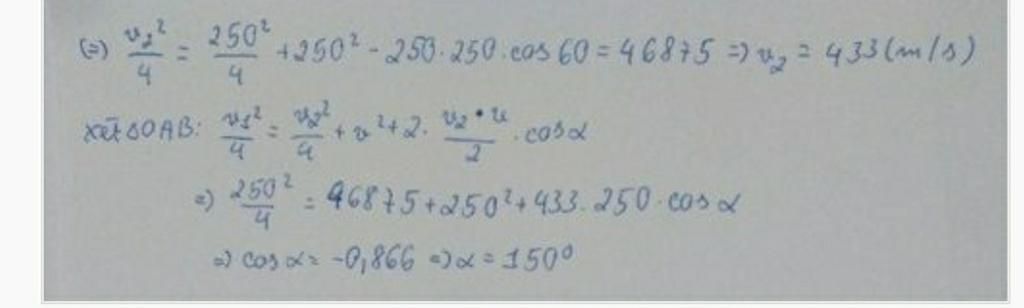 (=) v₂²/4 = 250²/4 + 250² - 250.250.cos60 = 46875 => v₂ = 433(m/s)
xét ΔOAB: v₁²/4 = v₂²/4 + v² + 2. v₂•v/2 .cosα
=) 250²/4 = 46875 + 250² + 433.250.cosα
=> cosα = -0,866 =) α = 150⁰